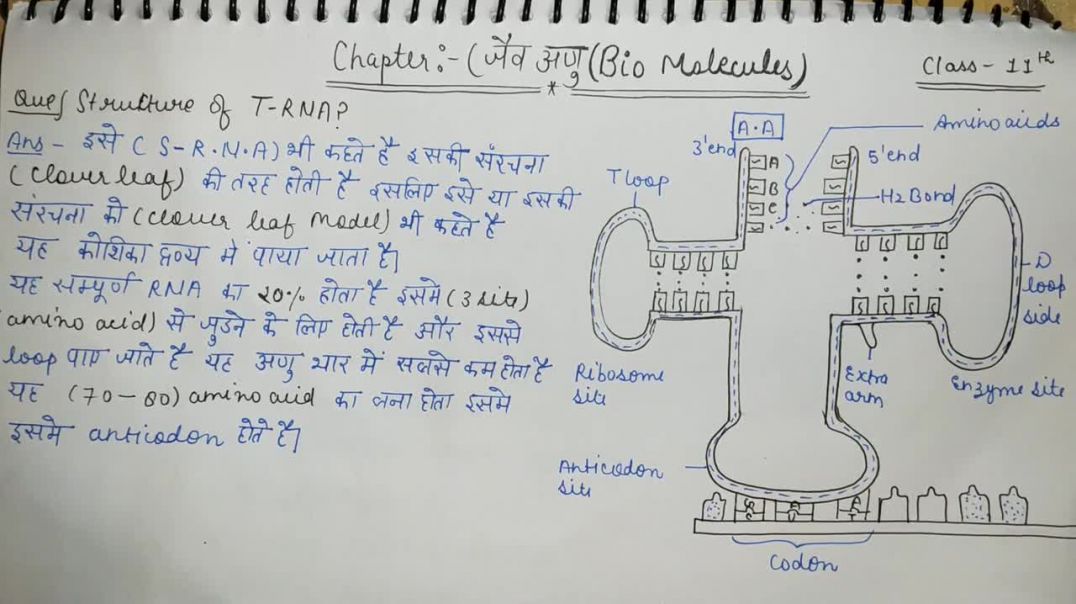 Chapter:- (जैव अणु (Bio Molecules)
Class - 11th
Ques) Structure of T-RNA?
Ans - इसे (S-R.N.A) भी कहते है इसकी संरचना
(clover leaf) की तरह होती है इसलिए इसे या इसकी
संरचना को (clover leaf Model) भी कहते है
यह कोशिका द्रव्य में पाया जाता है।
यह सम्पूर्ण RNA का 20% होता है इसमें (3 site)
amino acid) से जुड़ने के लिए होती है और इससे
loop पाए जाते है यह अणु भार में सबसे कम होता है
यह (70-80) amino acid का बना होता इसमें
इसमे anticodon होते है।
A.A
Amino acids
3'end
5'end
T loop
A
B
C
H2 Bond
D
loop
side
Ribosome
site
Extra
arm
Enzyme site
Anticodon
site
Codon